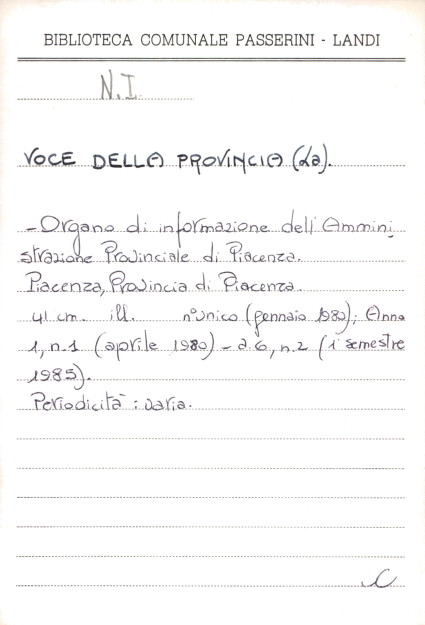 BIBLIOTECA COMUNALE PASSERINI - LANDI
N.I.
VOCE DELLA PROVINCIA (La).
- Organo di informazione dell'Ammini
strazione Provinciale di Piacenza.
Piacenza, Provincia di Piacenza.
41 cm. ill. n° unico (gennaio 1980); Anno
1, n. 1 (aprile 1980) - a. 6, n. 2 (1° semestre
1985).
Periodicità : varia.